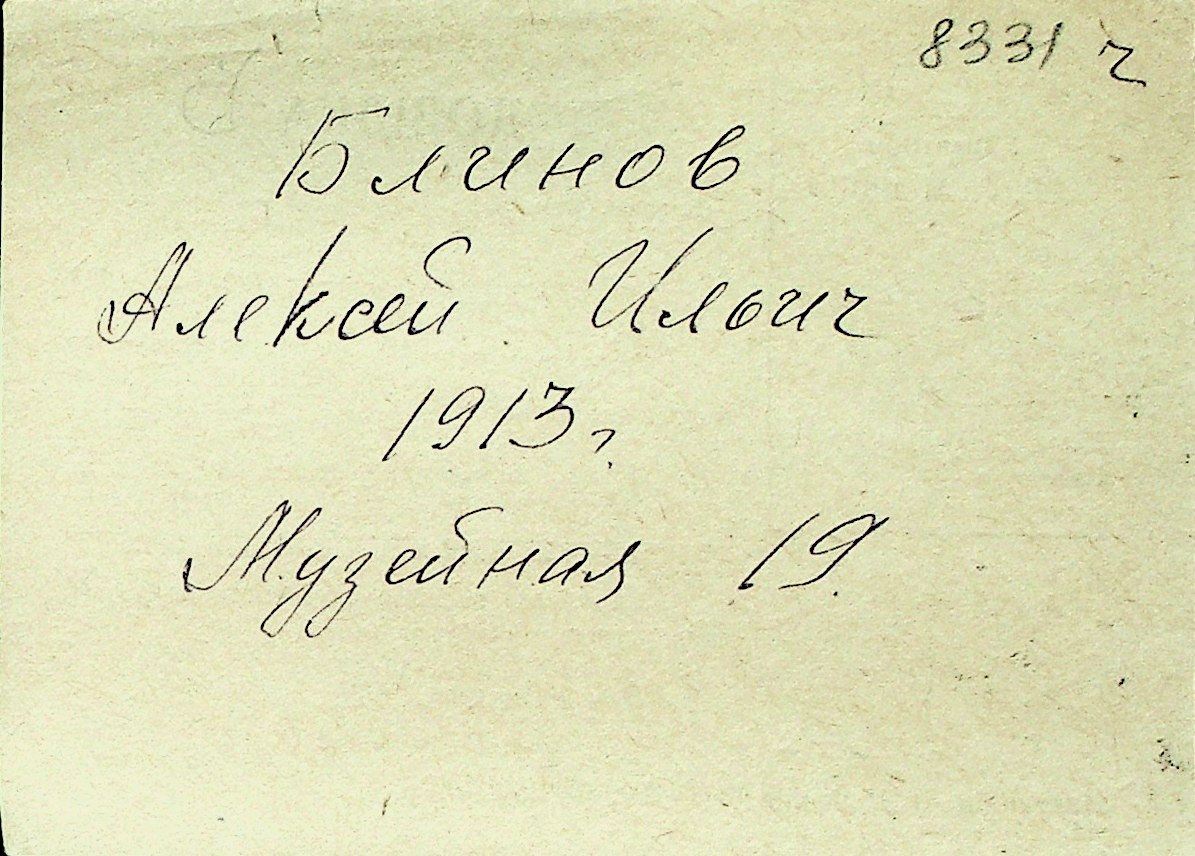 8331 ч
Блинов
Алексей Ильич
1913 г.
Музейная 19.